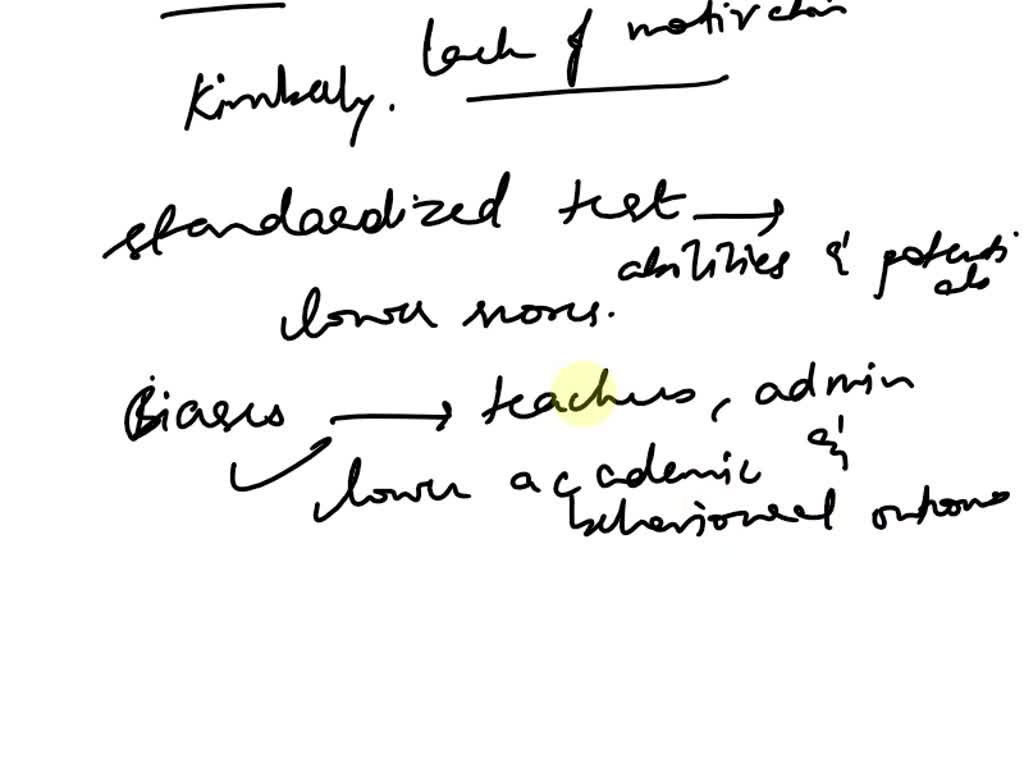 Kimberly. lack of motivation
standardized test →
abilities & potentials
lower scores.
Biases → teachers, admin
&
lower academic
behavioural outcome